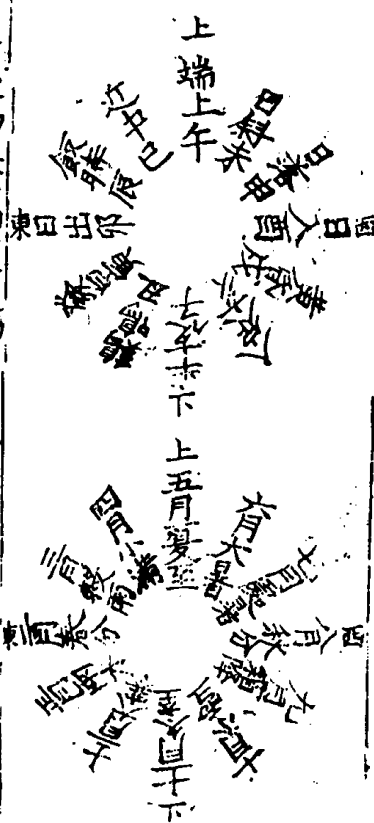 上
端上午
日斜未
日落申
西日入酉
黃昏戌
人定亥
半夜子
下
雞鳴丑
寅
東日出卯
飯時辰
近中巳
上
五月夏至
六月大暑
七月處暑
西八月秋分
九月霜降
十月小雪
十一月冬至
下
十二月大寒
正月雨水
東二月春分
三月穀雨
四月小滿